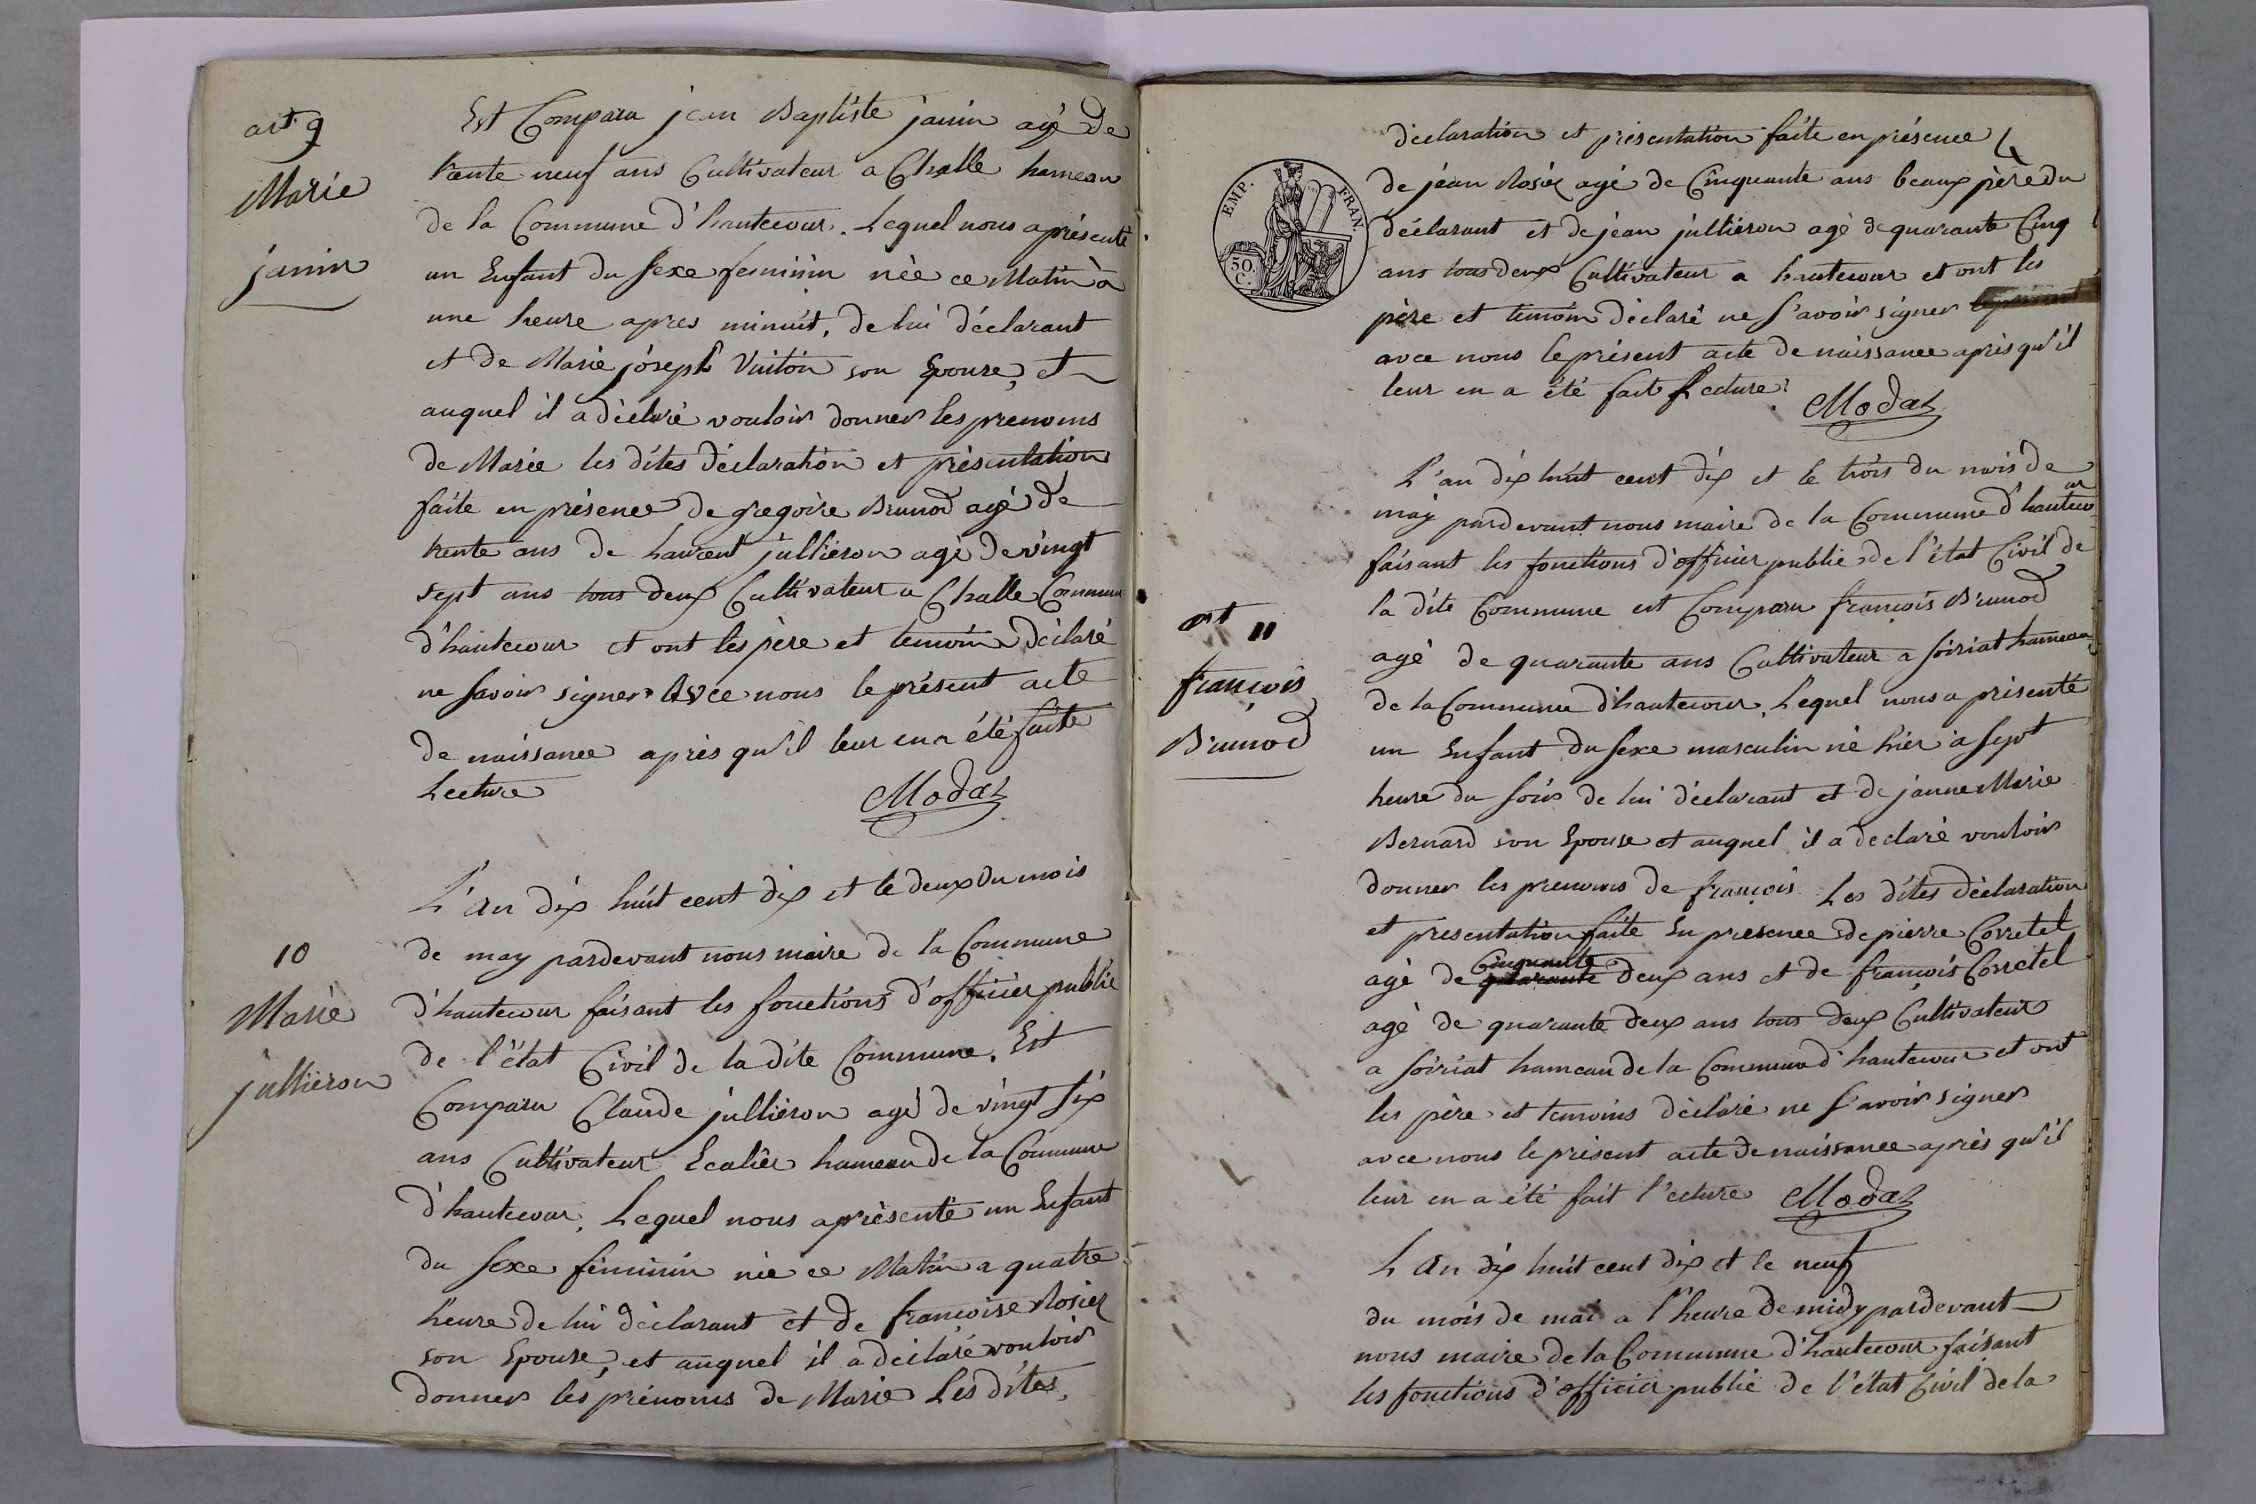 art 9
Marie
janin
Est Comparu jean Baptiste janin agé de
trente neuf ans Cultivateur a Challe hameau
de la Commune d'hautecour. Lequel nous a présenté
un Enfant du sexe feminin née ce Matin à
une heure apres minuit, de lui déclarant
et de Marie joseph Vuiton son Epouse, et
auquel il a déclaré vouloir donner les prenoms
de Marie les dites déclaration et présentation
faite en présence de gregoire Brunod agé de
trente ans de laurent jullieron agé de vingt
sept ans tous deux Cultivateur a Challe Commune
d'hautecour et ont les père et temoin déclaré
ne savoir signer avec nous le présent acte
de naissance après qu'il leur en a été faite
Lecture Modaz
10
Marie
jullieron
L'an dix huit cent dix et le deux du mois
de may pardevant nous maire de la Commune
d'hautecour faisant les fonctions d'officier public
de l'état Civil de la dite Commune. Est
Comparu Claude jullieron agé de vingt six
ans Cultivateur Ecalier hameau de la Commune
d'hautecour. Lequel nous a présenté un Enfant
du sexe féminin née ce Matin a quatre
heure de lui déclarant et de françoise Rosier
son Epouse, et auquel il a déclaré vouloir
donner les prénoms de Marie Les dites
EMP. FRAN.
50.
C.
déclaration et présentation faite en présence
de jéan Rosier agé de Cinquante ans beaux père du
déclarant et de jean jullieron agé de quarante Cinq
ans tous deux Cultivateur a hautecour et ont les
père et temoin déclaré ne s'avoir signer
avec nous le présent acte de naissance après qu'il
leur en a été fait Lecture. Modaz
art 11
françois
Brunod
L'an dix huit cent dix et le trois du mois de
may pardevant nous maire de la Commune d'hautecour
faisant les fonctions d'officier public de l'état Civil de
la dite Commune est Comparu françois Brunod
agé de quarante ans Cultivateur a soiriat hameau
de la Commune d'hautecour. Lequel nous a présenté
un Enfant du sexe masculin né hier à sept
heure du soir de lui déclarant et de janne Marie
Bernard son Epouse et auquel il a declaré vouloir
donner les prenoms de françois Les dites déclaration
et presentation faite En presence de pierre Corretel
agé de quarante Cinquante deux ans et de françois Corretel
agé de quarante deux ans tous deux Cultivateur
a soiriat hameau de la Commune d'hautecour et ont
les père et temoins déclaré ne s'avoir signer
avec nous le présent acte de naissance après qu'il
leur en a été fait l'ecture Modaz
L'an dix huit cent dix et le neuf
du mois de mai a l'heure de midy pardevant
nous maire de la Commune d'hautecour faisant
les fonctions d'officier public de l'état Civil de la